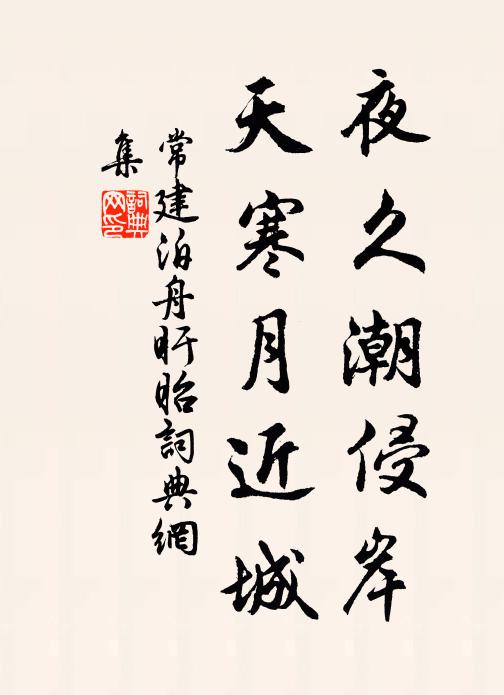 夜久潮侵岸
天寒月近城
常建泊舟盱眙詞典網
集
詞典
网印